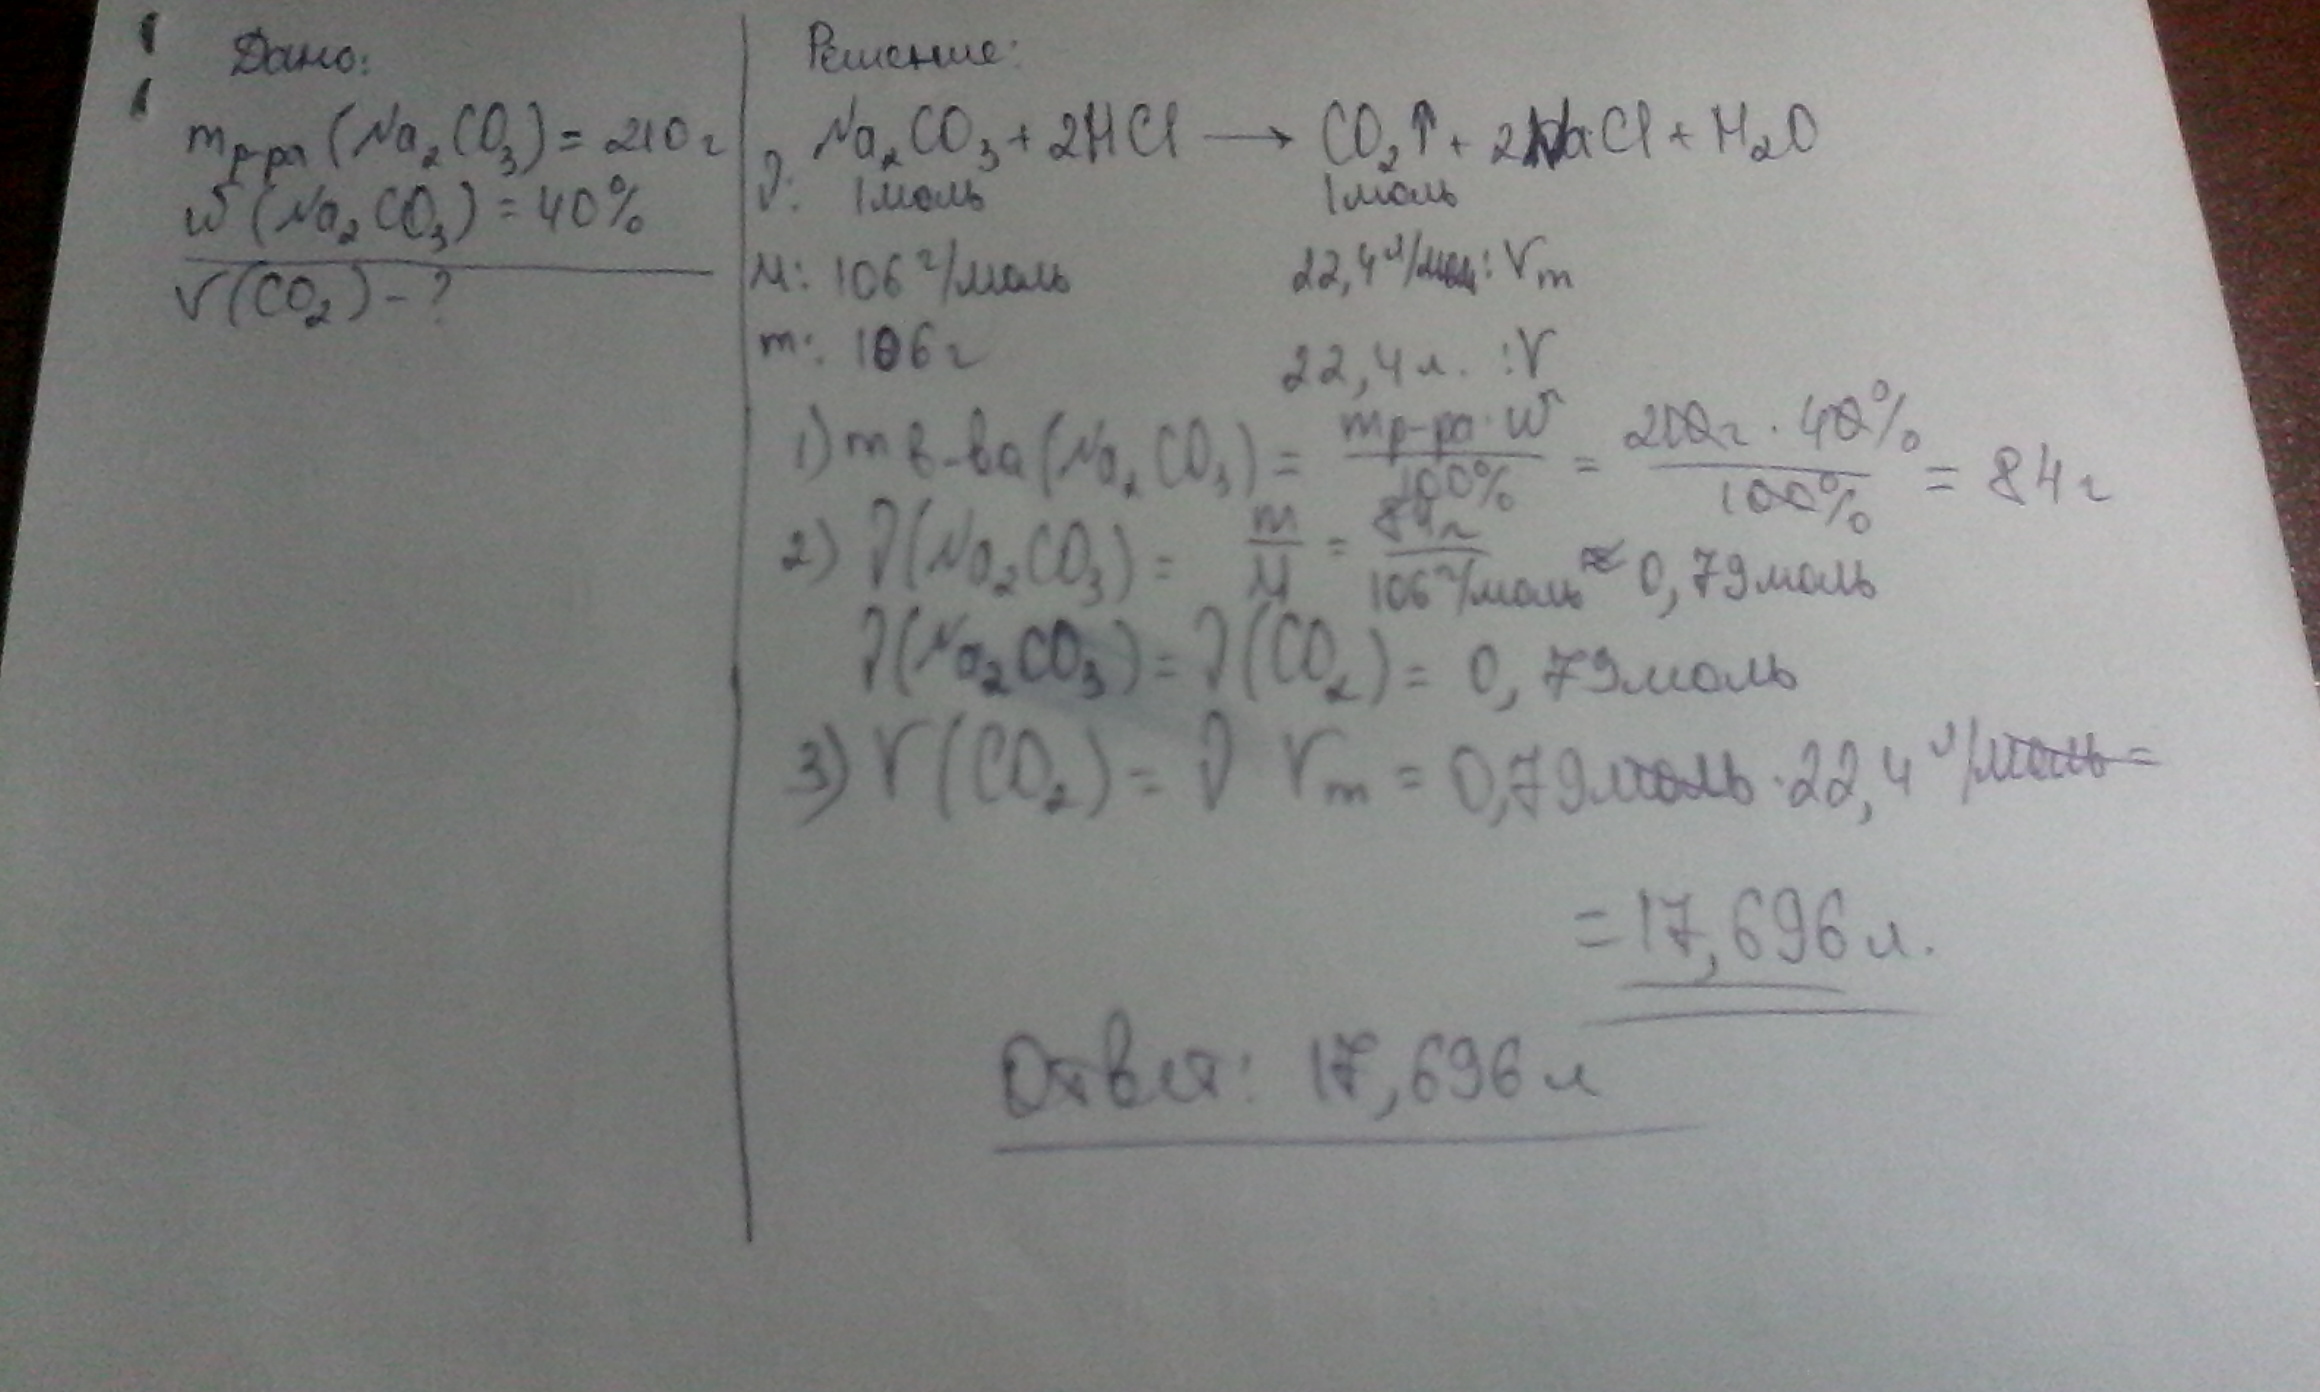 Дано:
mр-ра (Na₂CO₃) = 210 г
w (Na₂CO₃) = 40%
V(CO₂) - ?
Решение:
Na₂CO₃ + 2HCl → CO₂↑ + 2NaCl + H₂O
ν: 1 моль 1 моль
M: 106 г/моль 22,4 л/моль : Vm
m: 106 г 22,4 л. : V
1) m в-ва (Na₂CO₃) = mр-ра · w / 100% = 210 г · 40% / 100% = 84 г
2) ν(Na₂CO₃) = m / M = 84 г / 106 г/моль ≈ 0,79 моль
ν(Na₂CO₃) = ν(CO₂) = 0,79 моль
3) V(CO₂) = ν Vm = 0,79 моль · 22,4 л/моль =
= 17,696 л.
Ответ: 17,696 л